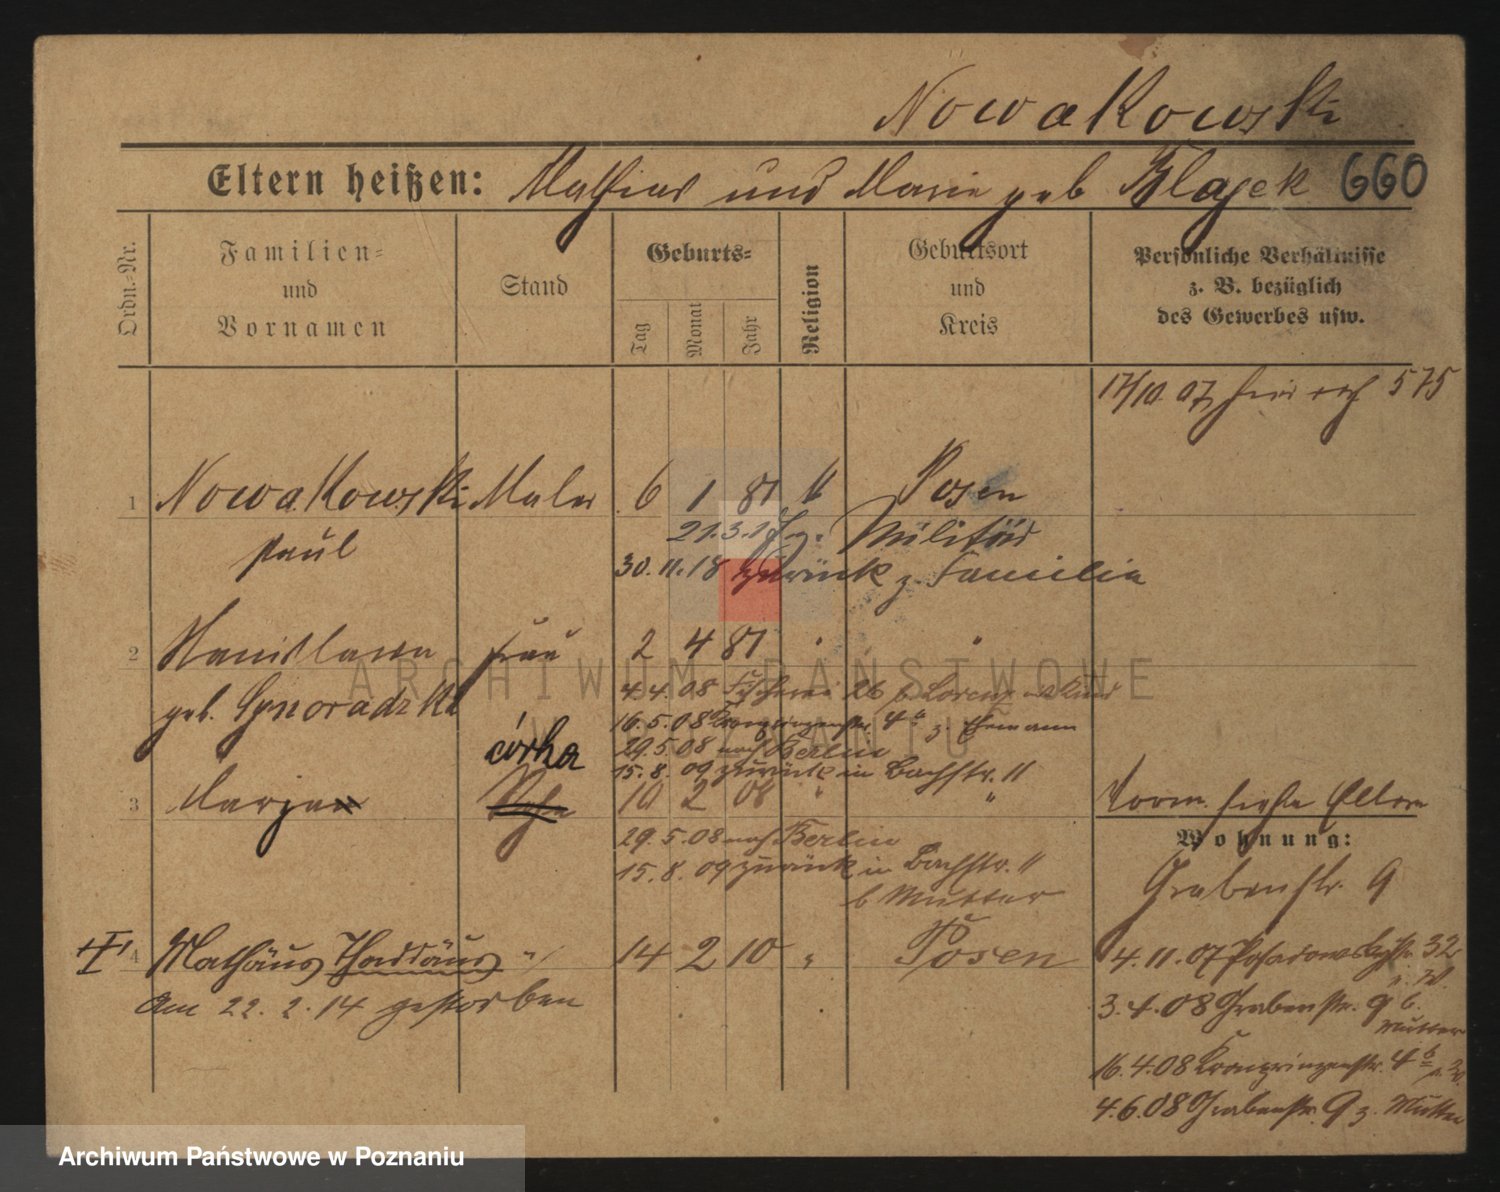 Nowakowski
Eltern heißen: Mathias und Marie geb Blazek 660
Ordn.-Nr.
Familien- und Vornamen
Stand
Geburts-
Tag
Monat
Jahr
Religion
Geburtsort und Kreis
Persönliche Verhältnisse z. B. bezüglich des Gewerbes usw.
17/10. 07 575
1 Nowakowski Maler 6 1 81 k Posen
Paul 21.3.17 z. Militär
30.11.18 zurück z. Familie
2 Stanislawa Frau 2 4 81 " "
geb. 4.4.08 Fischerei 26
16.5.08 Kronprinzenstr. 4a z. Ehemann
córka 29.5.08 nach Berlin
15.8.09 zurück in Bachstr. 11
3 Maryan 10 2 08 " "
29.5.08 nach Berlin
15.8.09 zurück in Bachstr. 11
b Mutter
siehe Eltern
Wohnung:
Grabenstr. 9
4 Mathäus Thaddäus " 14 2 10 " Posen
Am 22.2.14 gestorben
4.11.07 32
3.4.08 Grabenstr. 9 b. Mutter
16.4.08 Kronprinzenstr. 4b
4.6.08 Grabenstr. 9 z. Mutter
ARCHIWUM PAŃSTWOWE
W POZNANIU
Archiwum Państwowe w Poznaniu